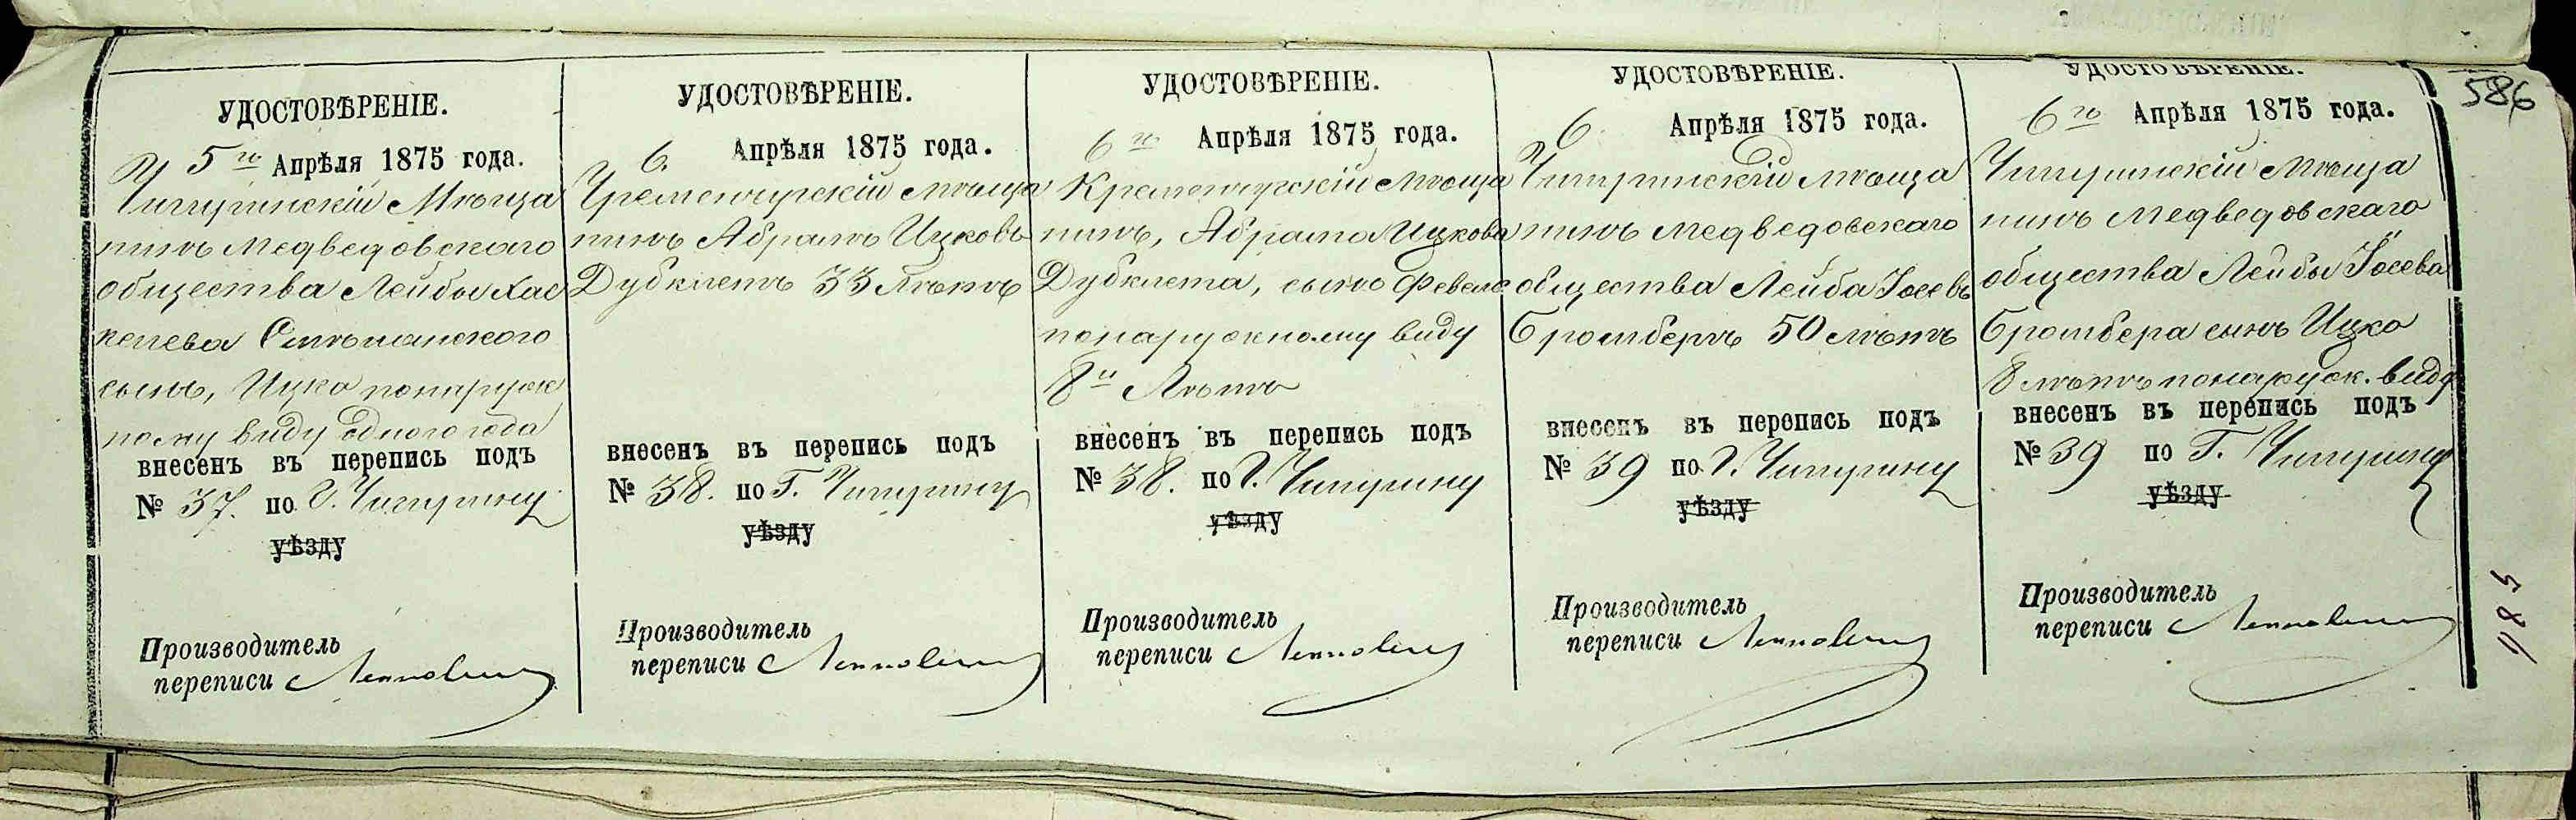 586
УДОСТОВѢРЕНІЕ.
5го Апрѣля 1875 года.
Чигиринскій Мѣща
нинъ Медведовскаго
общества Лейбы Хас
келева Смѣлянского
сынъ, Ицко по наруж
ному виду одного года
внесенъ въ перепись подъ
№ 37. по Г. Чигирину
уѣзду
Производитель
переписи
УДОСТОВѢРЕНІЕ.
6. Апрѣля 1875 года.
Кременчугскій мѣща
нинъ Абрамъ Ицковъ
Дубклетъ 33 лѣтъ
внесенъ въ перепись подъ
№ 38. по Г. Чигирину
уѣзду
Производитель
переписи
УДОСТОВѢРЕНІЕ.
6го Апрѣля 1875 года.
Кременчугскій мѣща
нинъ, Абрама Ицкова
Дубклета, сынъ Февель
по наружному виду
8и Лѣтъ
внесенъ въ перепись подъ
№ 38. по Г. Чигирину
уѣзду
Производитель
переписи
УДОСТОВѢРЕНІЕ.
6. Апрѣля 1875 года.
Чигиринскій мѣща
нинъ Медведовскаго
общества Лейба Іосевъ
Бромберъ 50 лѣтъ
внесенъ въ перепись подъ
№ 39 по Г. Чигирину
уѣзду
Производитель
переписи
УДОСТОВѢРЕНІЕ.
6го Апрѣля 1875 года.
Чигиринскій Мѣща
нинъ Медведовскаго
общества Лейбы Іосева
Бромбера сынъ Ицко
8 лѣтъ по наруж. виду
внесенъ въ перепись подъ
№ 39 по Г. Чигирину
уѣзду
Производитель
переписи